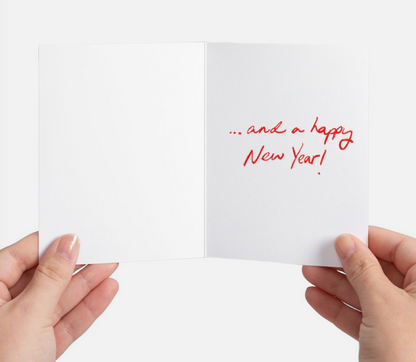 ...and a happy
New Year!